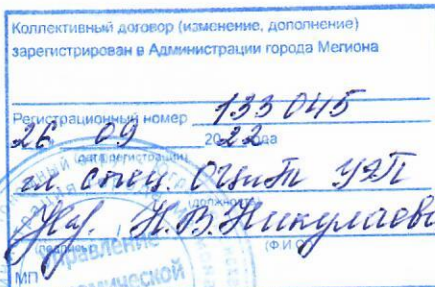 Коллективный договор (изменение, дополнение)
зарегистрирован в Администрации города Мегиона
Регистрационный номер 133045
26 09 2022 года
(дата регистрации)
гл. спец. УЭП
(должность)
Н.В. Никулаева
(подпись) (Ф.И.О.)
МП
управление